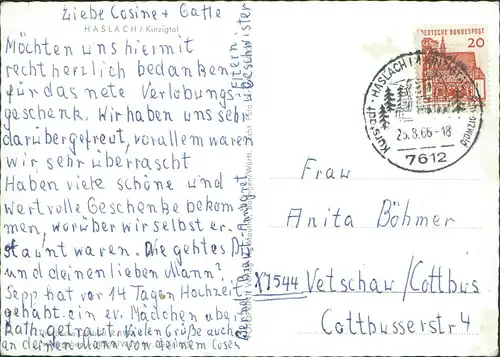 Liebe Cosine + Gatte
HASLACH / Kinzigtal
Möchten uns hiermit
recht herzlich bedanken
für das nete Verlobungs-
geschenk. Wir haben uns sehr
darüber gefreut, vorallem waren
wir sehr überrascht
Haben viele schöne und
wertvolle Geschenke bekom-
men, worüber wir selbst er-
staunt waren. Wie gehtes Dir
und deinen lieben Mann?
Sepp hat vor 14 Tagen Hochzeit
gehabt. ein ev. Mädchen aber
Kath. getraut. Vielen Grüße auch
an deinen Mann von deinem Cosen
Eltern
u. Geschwister
DEUTSCHE BUNDESPOST
20
HASLACH
25.8.66-18
7612
Frau
Anita Böhmer
X7544 Vetschau/Cottbus
Cottbusserstr 4